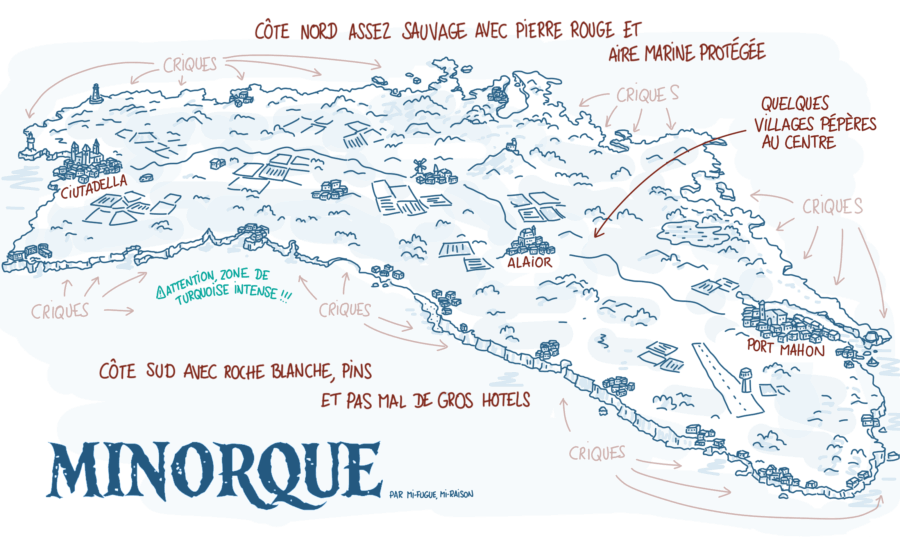 CÔTE NORD ASSEZ SAUVAGE AVEC PIERRE ROUGE ET
AIRE MARINE PROTÉGÉE
CRIQUES
CRIQUES
QUELQUES
VILLAGES PÉPÈRES
AU CENTRE
CIUTADELLA
CRIQUES
ALAIOR
⚠ATTENTION, ZONE DE
TURQUOISE INTENSE !!!
CRIQUES
CRIQUES
PORT MAHON
CÔTE SUD AVEC ROCHE BLANCHE, PINS
ET PAS MAL DE GROS HOTELS
CRIQUES
MINORQUE
PAR MI-FUGUE, MI-RAISON